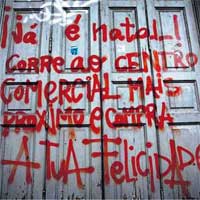 ¡já é natal..!
CORRE AO CENTRO
COMERCIAL MAIS
PRÓXIMO E COMPRA
A TUA FELICIDADE